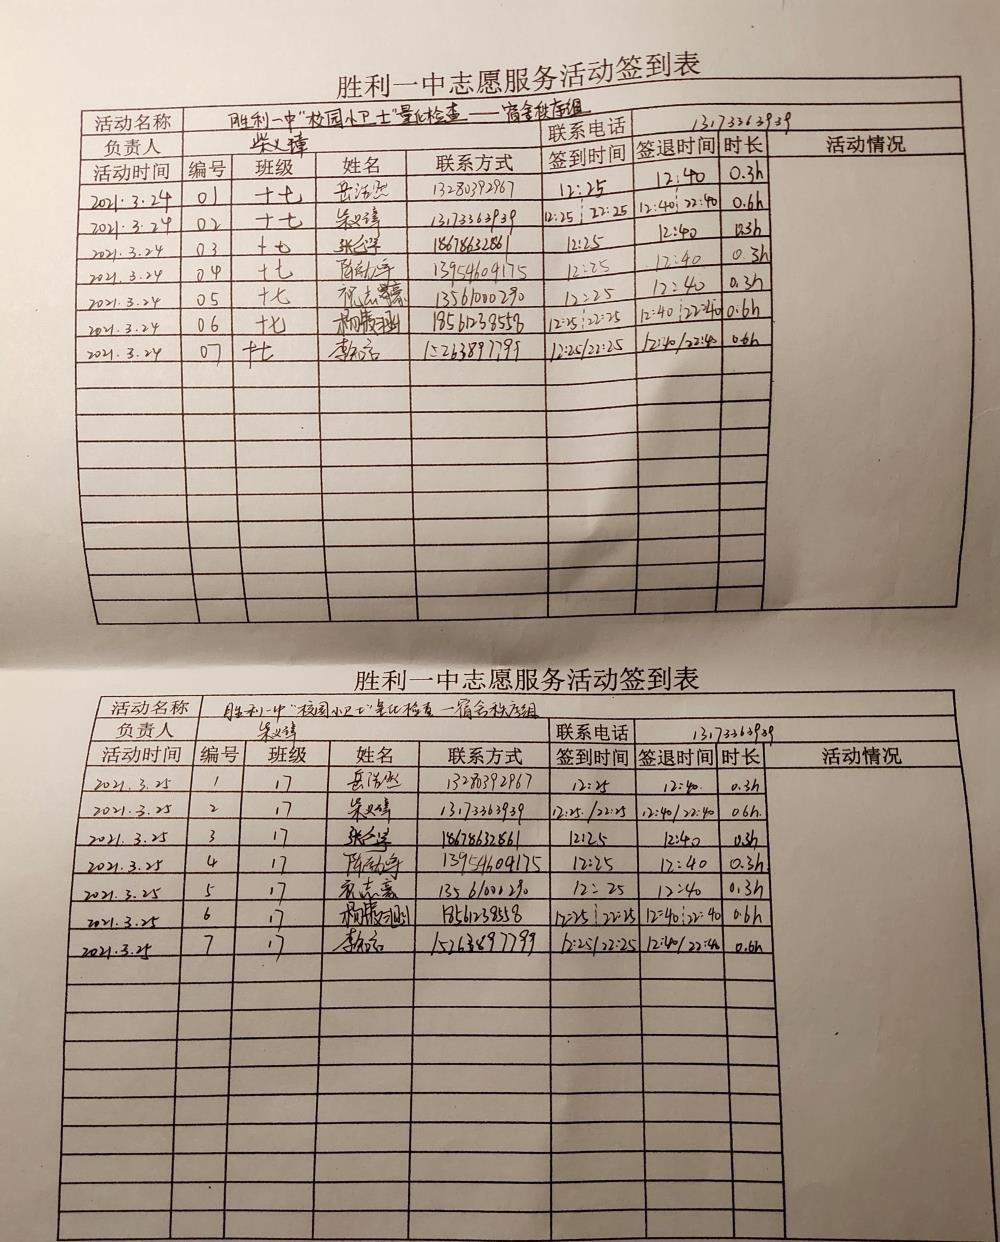 胜利一中志愿服务活动签到表
活动名称 胜利一中"校园小卫士"量化检查——宿舍秩序组
负责人 柴义璋 联系电话 13173363939
活动时间 编号 班级 姓名 联系方式 签到时间 签退时间 时长 活动情况
2021.3.24 01 十七 岳浩然 13280392967 12:25 12:40 0.3h
2021.3.24 02 十七 柴义璋 13173363939 12:25;22:25 12:40;22:40 0.6h
2021.3.24 03 十七 18678632861 12:25 12:40 0.3h
2021.3.24 04 十七 13954604175 12:25 12:40 0.3h
2021.3.24 05 十七 祝志豪 13561000290 12:25 12:40 0.3h
2021.3.24 06 十七 18561238558 12:25;22:25 12:40;22:40 0.6h
2021.3.24 07 十七 15263897799 12:25/22:25 12:40/22:40 0.6h
胜利一中志愿服务活动签到表
活动名称 胜利一中"校园小卫士"量化检查—宿舍秩序组
负责人 柴义璋 联系电话 13173363939
活动时间 编号 班级 姓名 联系方式 签到时间 签退时间 时长 活动情况
2021.3.25 1 17 岳浩然 13280392967 12:25 12:40 0.3h
2021.3.25 2 17 柴义璋 13173363939 12:25/22:25 12:40/22:40 0.6h
2021.3.25 3 17 18678632861 12:25 12:40 0.3h
2021.3.25 4 17 13954604175 12:25 12:40 0.3h
2021.3.25 5 17 祝志豪 13561000290 12:25 12:40 0.3h
2021.3.25 6 17 18561238558 12:25;22:25 12:40;22:40 0.6h
2021.3.25 7 17 15263897799 12:25/22:25 12:40/22:40 0.6h